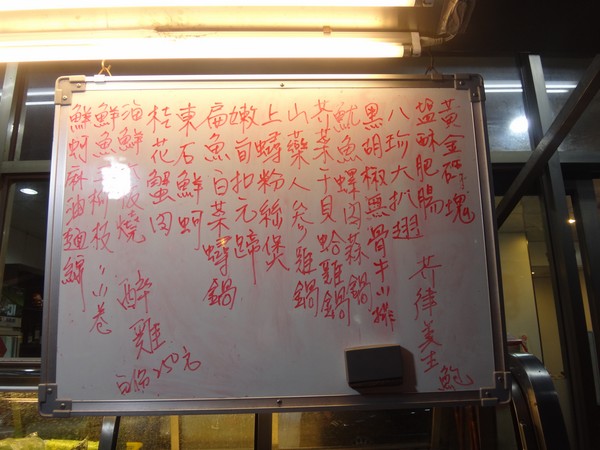 黃金磚塊
鹽酥肥腸
芥律美生鮑
八珍大扒翅
黑胡椒無骨牛小排
魷魚螺肉蒜鍋
芥菜干貝蛤雞鍋
山藥人參雞鍋
上蟳粉絲煲
嫩筍扣元蹄
扁魚白菜蟳鍋
東石鮮蚵
桂花蟹肉
海鮮 燒
醉雞
250元
鮮魚 小卷
鮮蚵麻油麵線